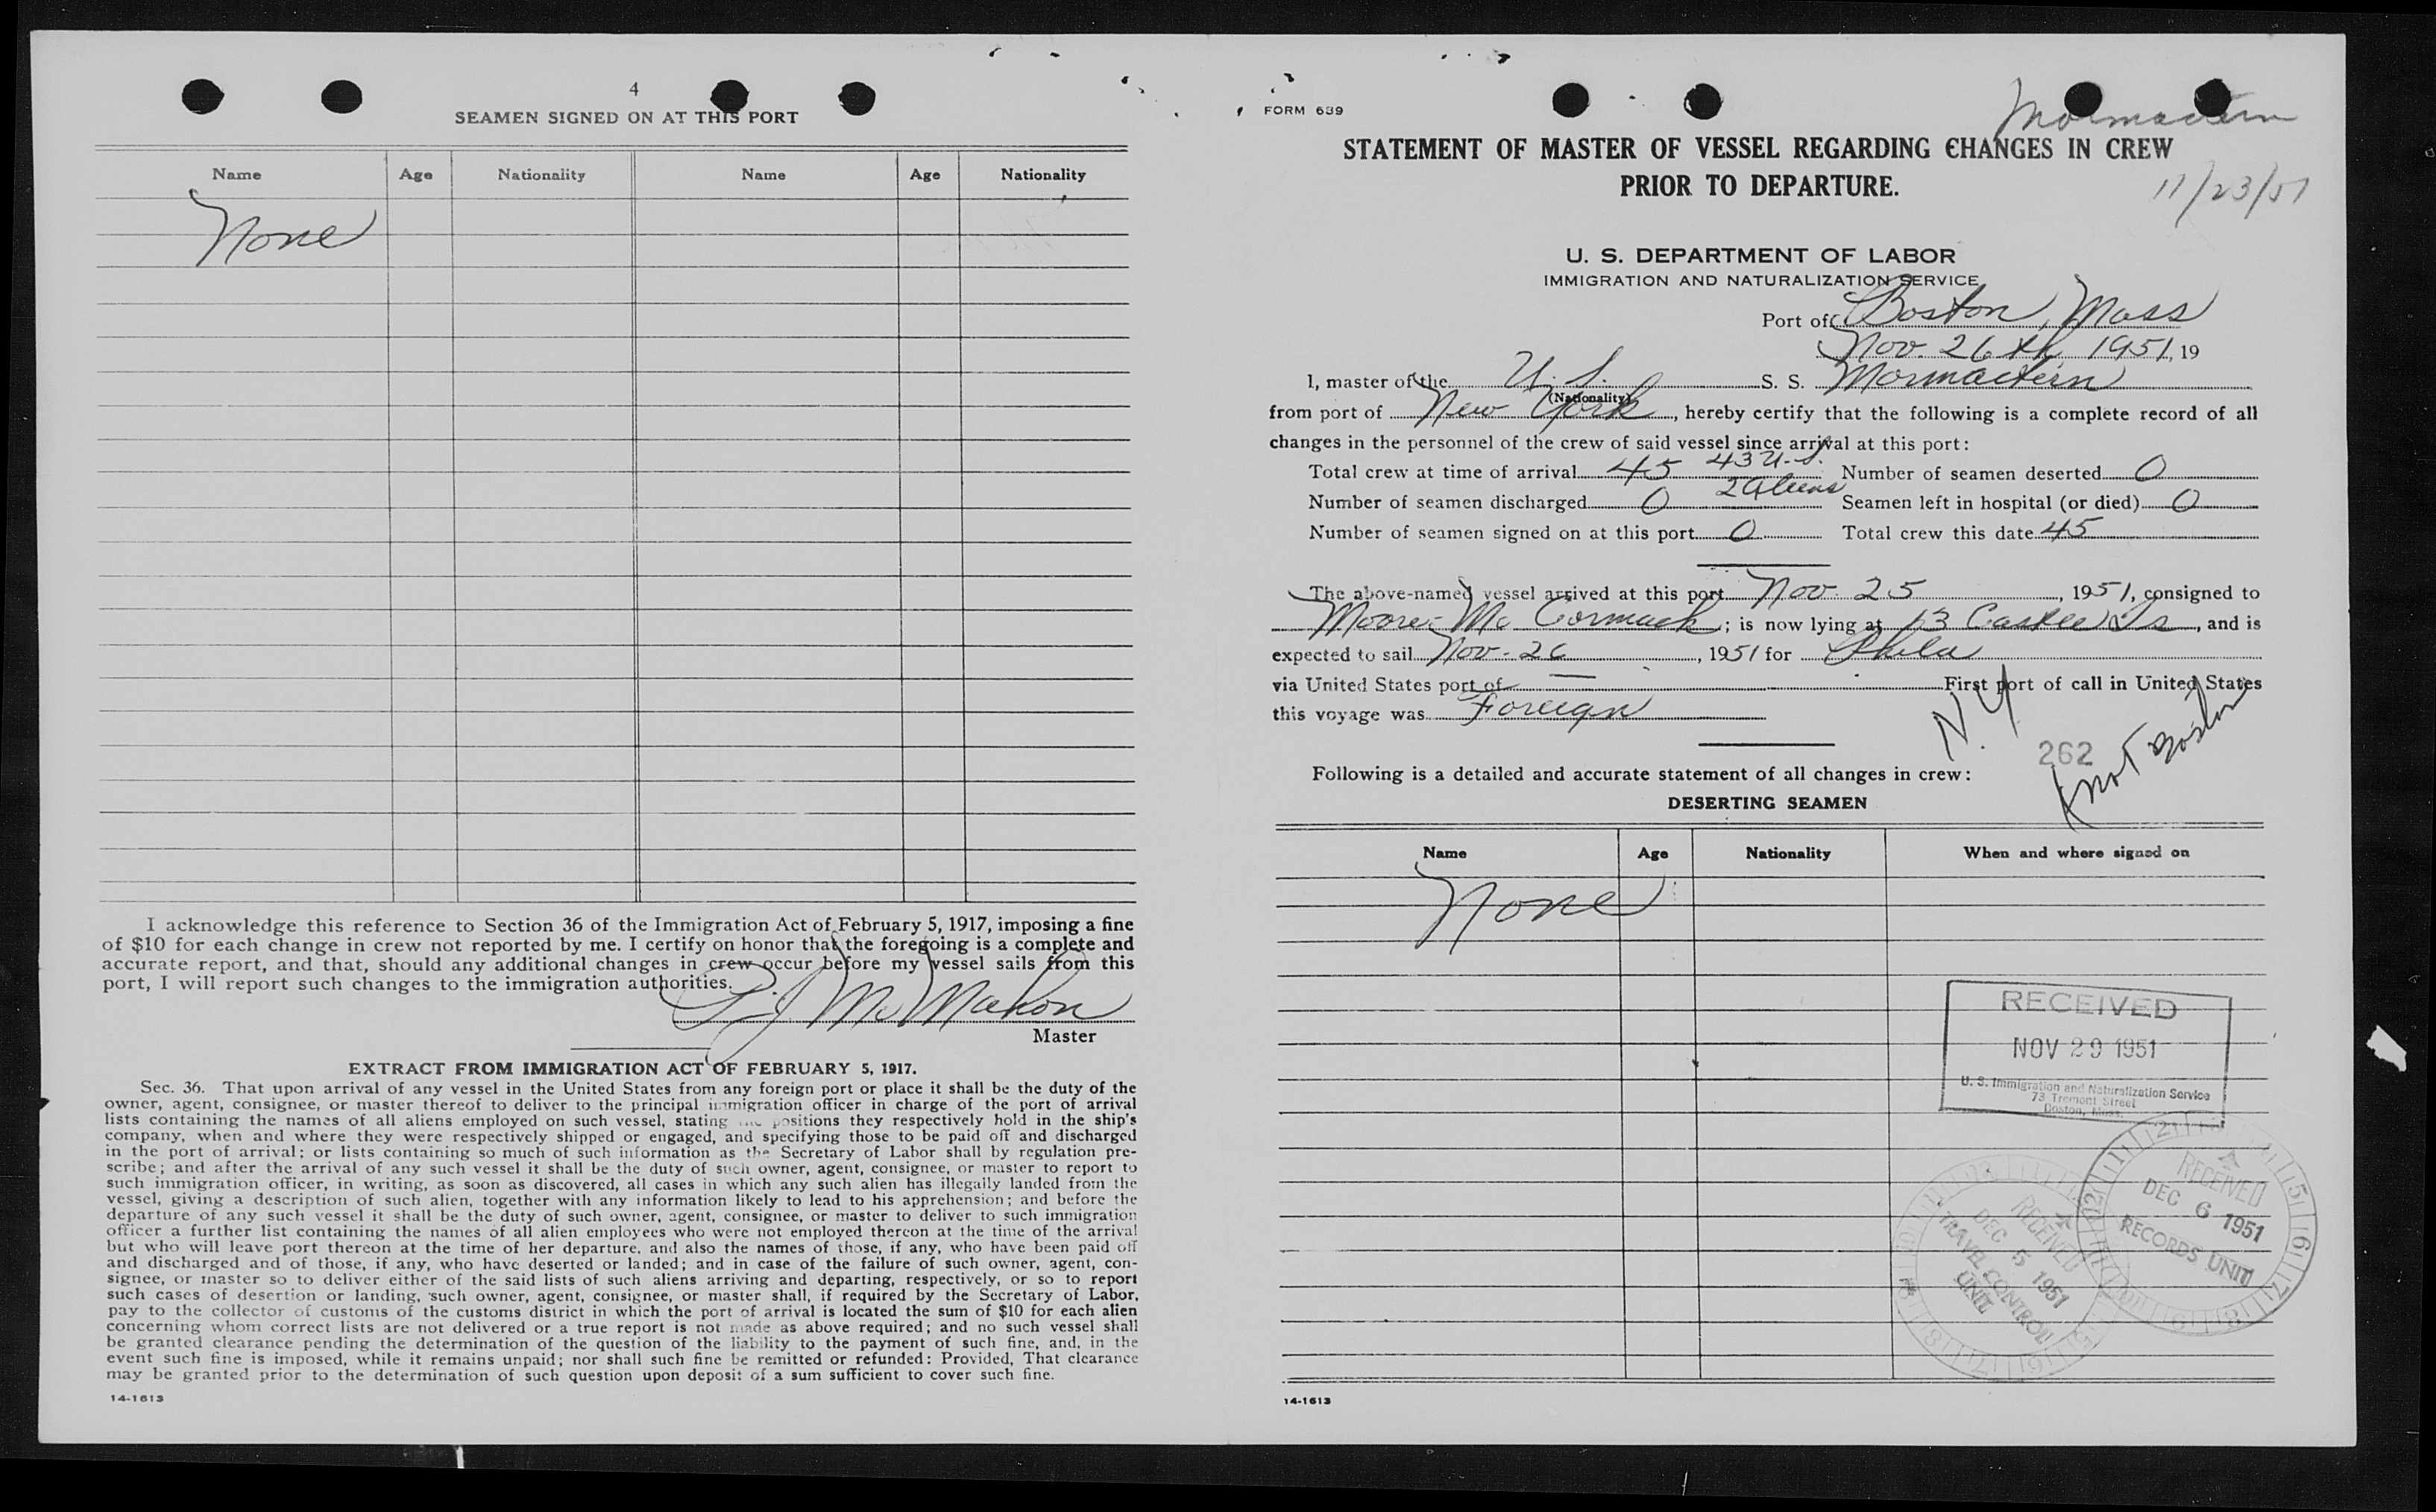 4
SEAMEN SIGNED ON AT THIS PORT
Name Age Nationality Name Age Nationality
None
I acknowledge this reference to Section 36 of the Immigration Act of February 5, 1917, imposing a fine
of $10 for each change in crew not reported by me. I certify on honor that the foregoing is a complete and
accurate report, and that, should any additional changes in crew occur before my vessel sails from this
port, I will report such changes to the immigration authorities.
P. J. McMahon
Master
EXTRACT FROM IMMIGRATION ACT OF FEBRUARY 5, 1917.
Sec. 36. That upon arrival of any vessel in the United States from any foreign port or place it shall be the duty of the
owner, agent, consignee, or master thereof to deliver to the principal immigration officer in charge of the port of arrival
lists containing the names of all aliens employed on such vessel, stating the positions they respectively hold in the ship's
company, when and where they were respectively shipped or engaged, and specifying those to be paid off and discharged
in the port of arrival; or lists containing so much of such information as the Secretary of Labor shall by regulation pre-
scribe; and after the arrival of any such vessel it shall be the duty of such owner, agent, consignee, or master to report to
such immigration officer, in writing, as soon as discovered, all cases in which any such alien has illegally landed from the
vessel, giving a description of such alien, together with any information likely to lead to his apprehension; and before the
departure of any such vessel it shall be the duty of such owner, agent, consignee, or master to deliver to such immigration
officer a further list containing the names of all alien employees who were not employed thereon at the time of the arrival
but who will leave port thereon at the time of her departure, and also the names of those, if any, who have been paid off
and discharged and of those, if any, who have deserted or landed; and in case of the failure of such owner, agent, con-
signee, or master so to deliver either of the said lists of such aliens arriving and departing, respectively, or so to report
such cases of desertion or landing, such owner, agent, consignee, or master shall, if required by the Secretary of Labor,
pay to the collector of customs of the customs district in which the port of arrival is located the sum of $10 for each alien
concerning whom correct lists are not delivered or a true report is not made as above required; and no such vessel shall
be granted clearance pending the determination of the question of the liability to the payment of such fine, and, in the
event such fine is imposed, while it remains unpaid; nor shall such fine be remitted or refunded: Provided, That clearance
may be granted prior to the determination of such question upon deposit of a sum sufficient to cover such fine.
14-1613
FORM 689
Mormactern
STATEMENT OF MASTER OF VESSEL REGARDING CHANGES IN CREW
PRIOR TO DEPARTURE.
11/23/51
U. S. DEPARTMENT OF LABOR
IMMIGRATION AND NATURALIZATION SERVICE
Port of Boston, Mass
Nov. 26th 1951, 19
I, master of the U. S. S. S. Mormactern
(Nationality)
from port of New York, hereby certify that the following is a complete record of all
changes in the personnel of the crew of said vessel since arrival at this port:
Total crew at time of arrival 45 43 U.S. Number of seamen deserted 0
Number of seamen discharged 0 2 Aliens Seamen left in hospital (or died) 0
Number of seamen signed on at this port 0 Total crew this date 45
The above-named vessel arrived at this port Nov. 25, 1951, consigned to
Moore-McCormack; is now lying at 13 Castle Is, and is
expected to sail Nov-26, 1951 for Phila
via United States port of — First port of call in United States
this voyage was Foreign
N. Y
262
(not Boston
Following is a detailed and accurate statement of all changes in crew:
DESERTING SEAMEN
Name Age Nationality When and where signed on
None
RECEIVED
NOV 29 1951
U. S. Immigration and Naturalization Service
73 Tremont Street
Boston, Mass.
RECEIVED
DEC 6 1951
RECORDS UNIT
RECEIVED
DEC 5 1951
TRAVEL CONTROL
UNIT
14-1613